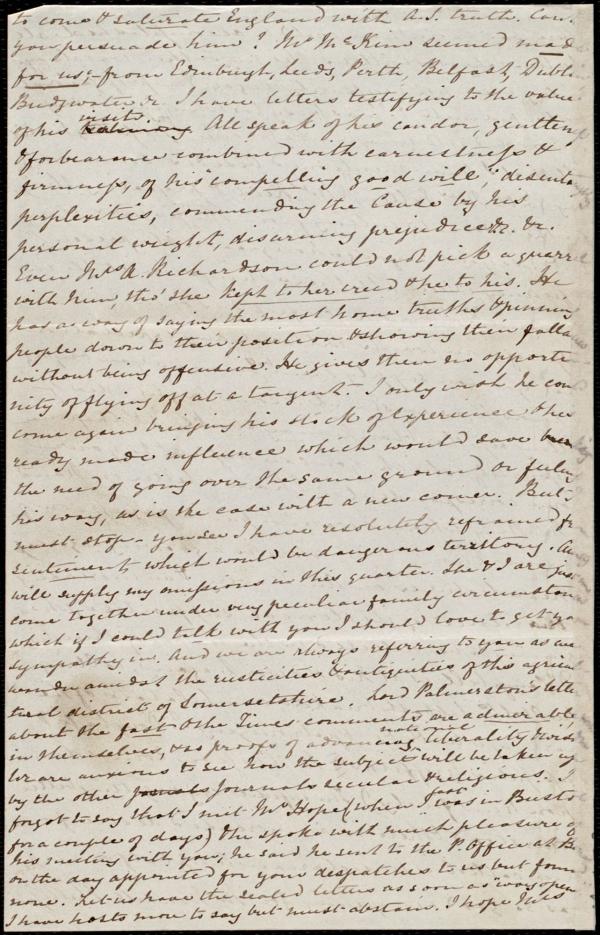 to come & saturate England with A.S. truth. Can
you persuade him? Mr McKim seemed made
for us;- from Edinburgh, Leeds, Perth, Belfast, Dubli
Bridgwater &c I have letters testifying to the value
of his visits. All speak of his candor, gentlen
& forbearance combined with earnestness &
firmness, of his "compelling good will," disenta
perplexities, commending the Cause by his
personal weight, disarming prejudice &c. &c.
Even Mrs A. Richardson could not pick a quarrel
with him, tho' she kept to her creed & he to his. He
has a way of saying the most home truths & pinning
people down to their position & showing them falla
without being offensive. He gives them no opportu
nity of flying off at a tangent. I only wish he cou
come again bringing his stock of experience & his
ready made influence which would save
the need of going over the same ground or feeling
his way, as is the case with a new comer. But I
must stop - you see I have resolutely refrained fr
sentiment which would be dangerous territory.
will supply my omissions in this quarter. She & I are jus
come together under very peculiar family circumstan
which if I could talk with you I should love to get yr
sympathy in. And we are always referring to you as we
wander amidst the rusticities & antiquities of this agricul
tural district of Somersetshire. Lord Palmerston's lette
about the fast & the Times comments are admirable
in themselves, & as proofs of advancing liberality &
We are anxious to see how the subject will be taken up
by the other journals secular & religious. I
forgot to say that I met Mr Hope (when I was in Bristo
for a couple of days) & he spoke with much pleasure of
his meeting with you; he said he sent to the P. Office at B
on the day appointed for your despatches to us but foun
none. Let us have the sealed letters as soon as
I have hosts more to say but must abstain. I hope